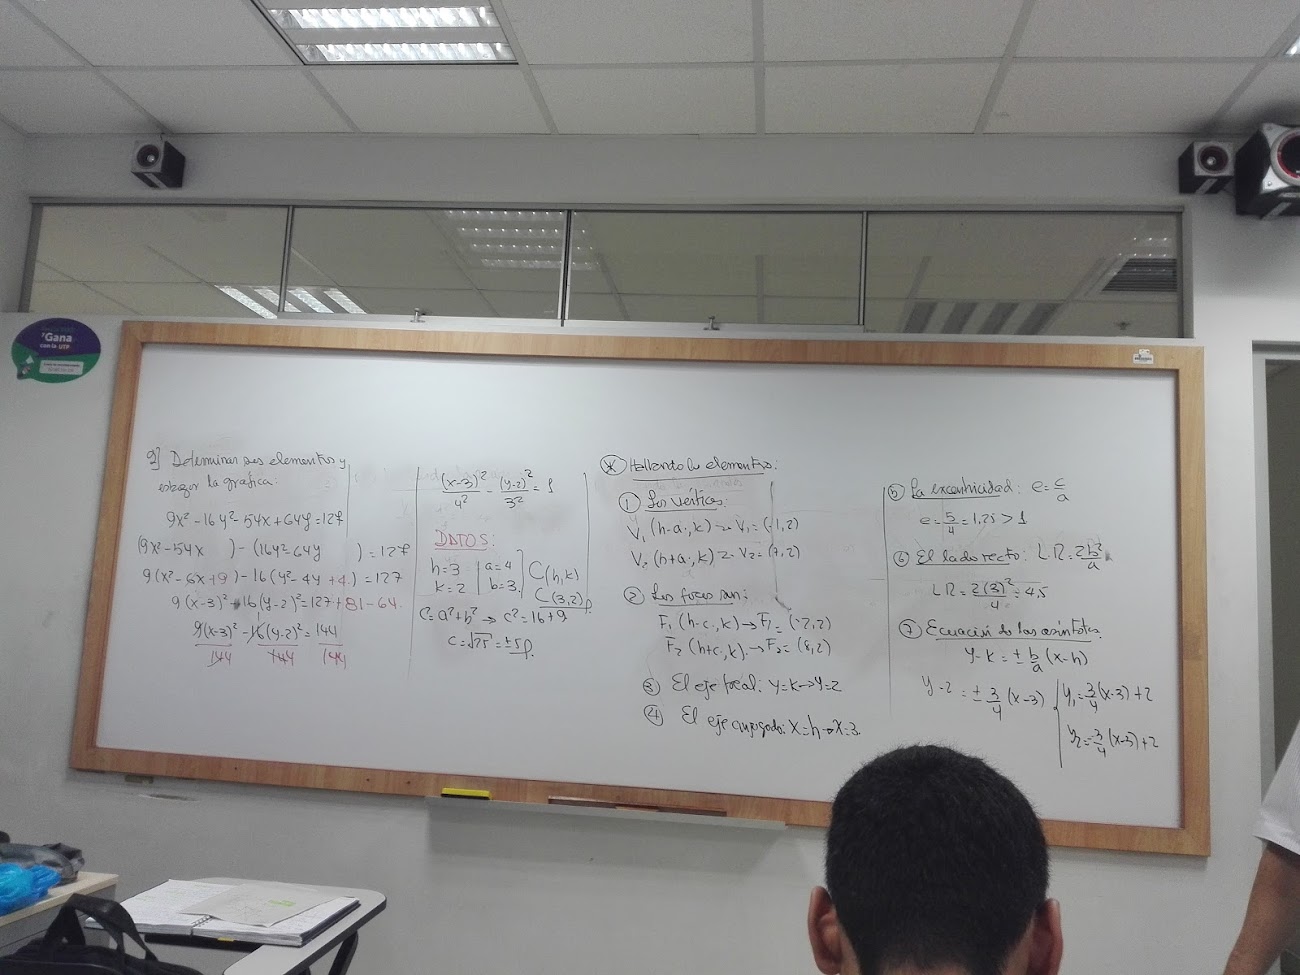 'Gana
con la UTP
9] Determinar sus elementos y
esbozar la gráfica:
9x² - 16y² - 54x + 64y = 127
(9x² - 54x ) - (16y² - 64y ) = 127
9(x² - 6x + 9) - 16(y² - 4y + 4) = 127
9(x-3)² - 16(y-2)² = 127 + 81 - 64
9(x-3)²/144 - 16(y-2)²/144 = 144/144
(x-3)²/4² - (y-2)²/3² = 1
DATOS:
h=3 | a=4
k=2 | b=3
C(h,k)
C(3,2)
c² = a² + b² → c² = 16 + 9
c = √25 = ±5
* Hallando los elementos:
① Los vértices:
V₁ (h-a, k) → V₁ = (-1, 2)
V₂ (h+a, k) → V₂ = (7, 2)
② Los focos son:
F₁ (h-c, k) → F₁ = (-2, 2)
F₂ (h+c, k) → F₂ = (8, 2)
③ El eje focal: y=k → y=2
④ El eje conjugado: x=h → x=3.
⑤ La excentricidad: e = c/a
e = 5/4 = 1,25 > 1
⑥ El lado recto: LR = 2b²/a
LR = 2(3)²/4 = 4,5
⑦ Ecuación de las asíntotas
y-k = ± b/a (x-h)
y-2 = ± 3/4 (x-3)
y₁ = 3/4 (x-3) + 2
y₂ = -3/4 (x-3) + 2